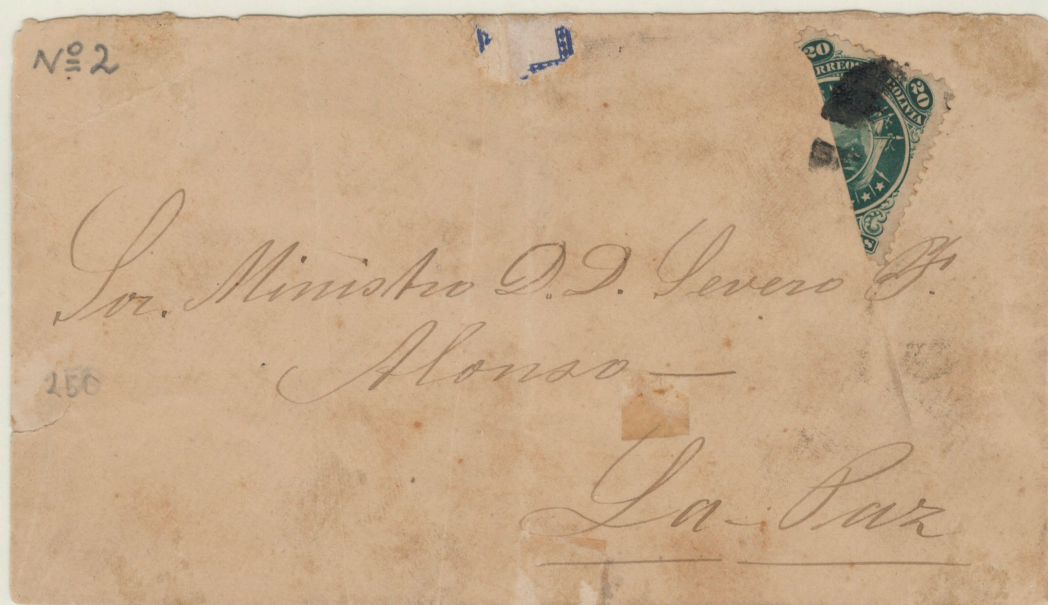 Nº 2
20
CORREOS
BOLIVIA
20
Sor. Ministro D.D. Severo F.
Alonso —
250
La Paz